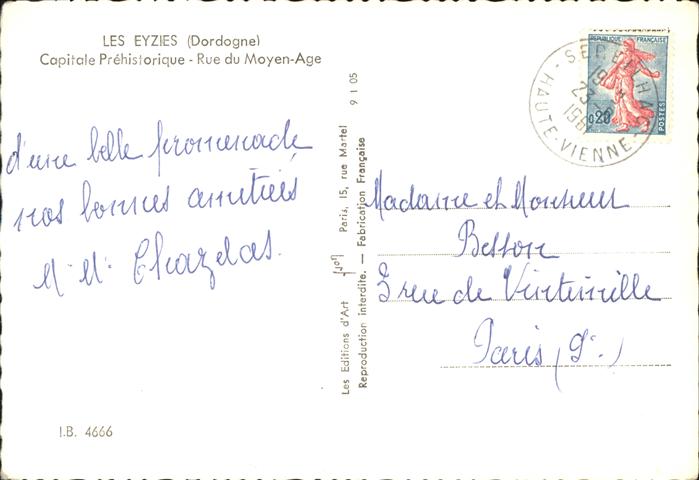 LES EYZIES (Dordogne)
Capitale Préhistorique - Rue du Moyen-Age
d'une belle promenade
nos bonnes amitiés
M. Mme Chazelas.
Les Editions d'Art Paris, 15, rue Martel 9 1 05
Reproduction interdite. — Fabrication Française
REPUBLIQUE FRANÇAISE
0,20
POSTES
HAUTE-VIENNE
Madame et Monsieur
Besson
3 rue de Vintimille
Paris (9e.)
I.B. 4666